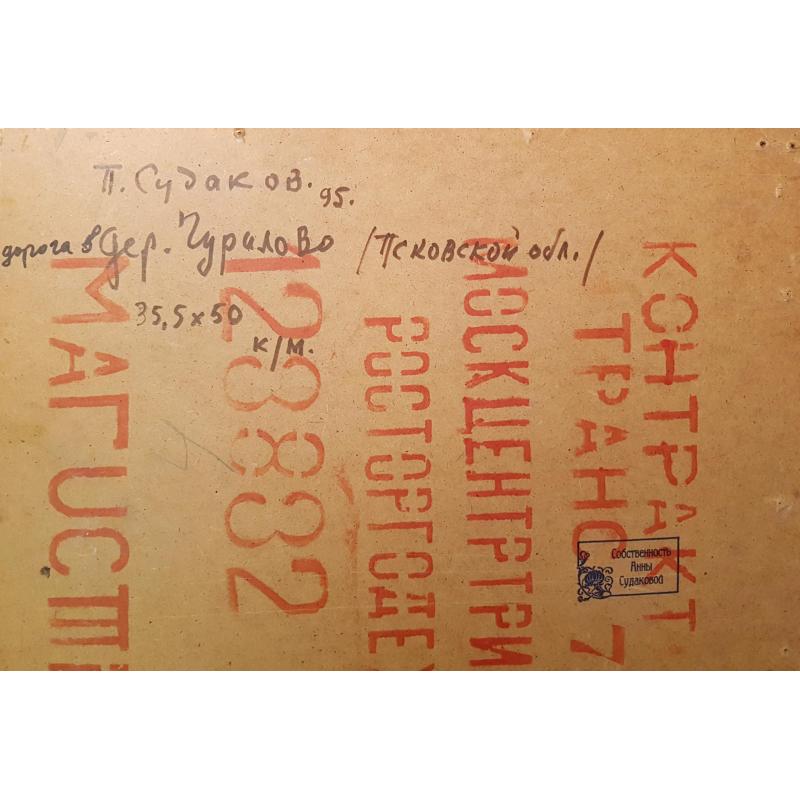 П. Судаков. 95.
дорога в дер. Чурилово /Псковской обл./
35,5х50
к/м.
КОНТРАКТ
ТРАНС 7
МОСКЦЕНТРТРИ
РОСТОРГОДЕ
123832
МАГИСТ
Собственность
Анны
Судаковой